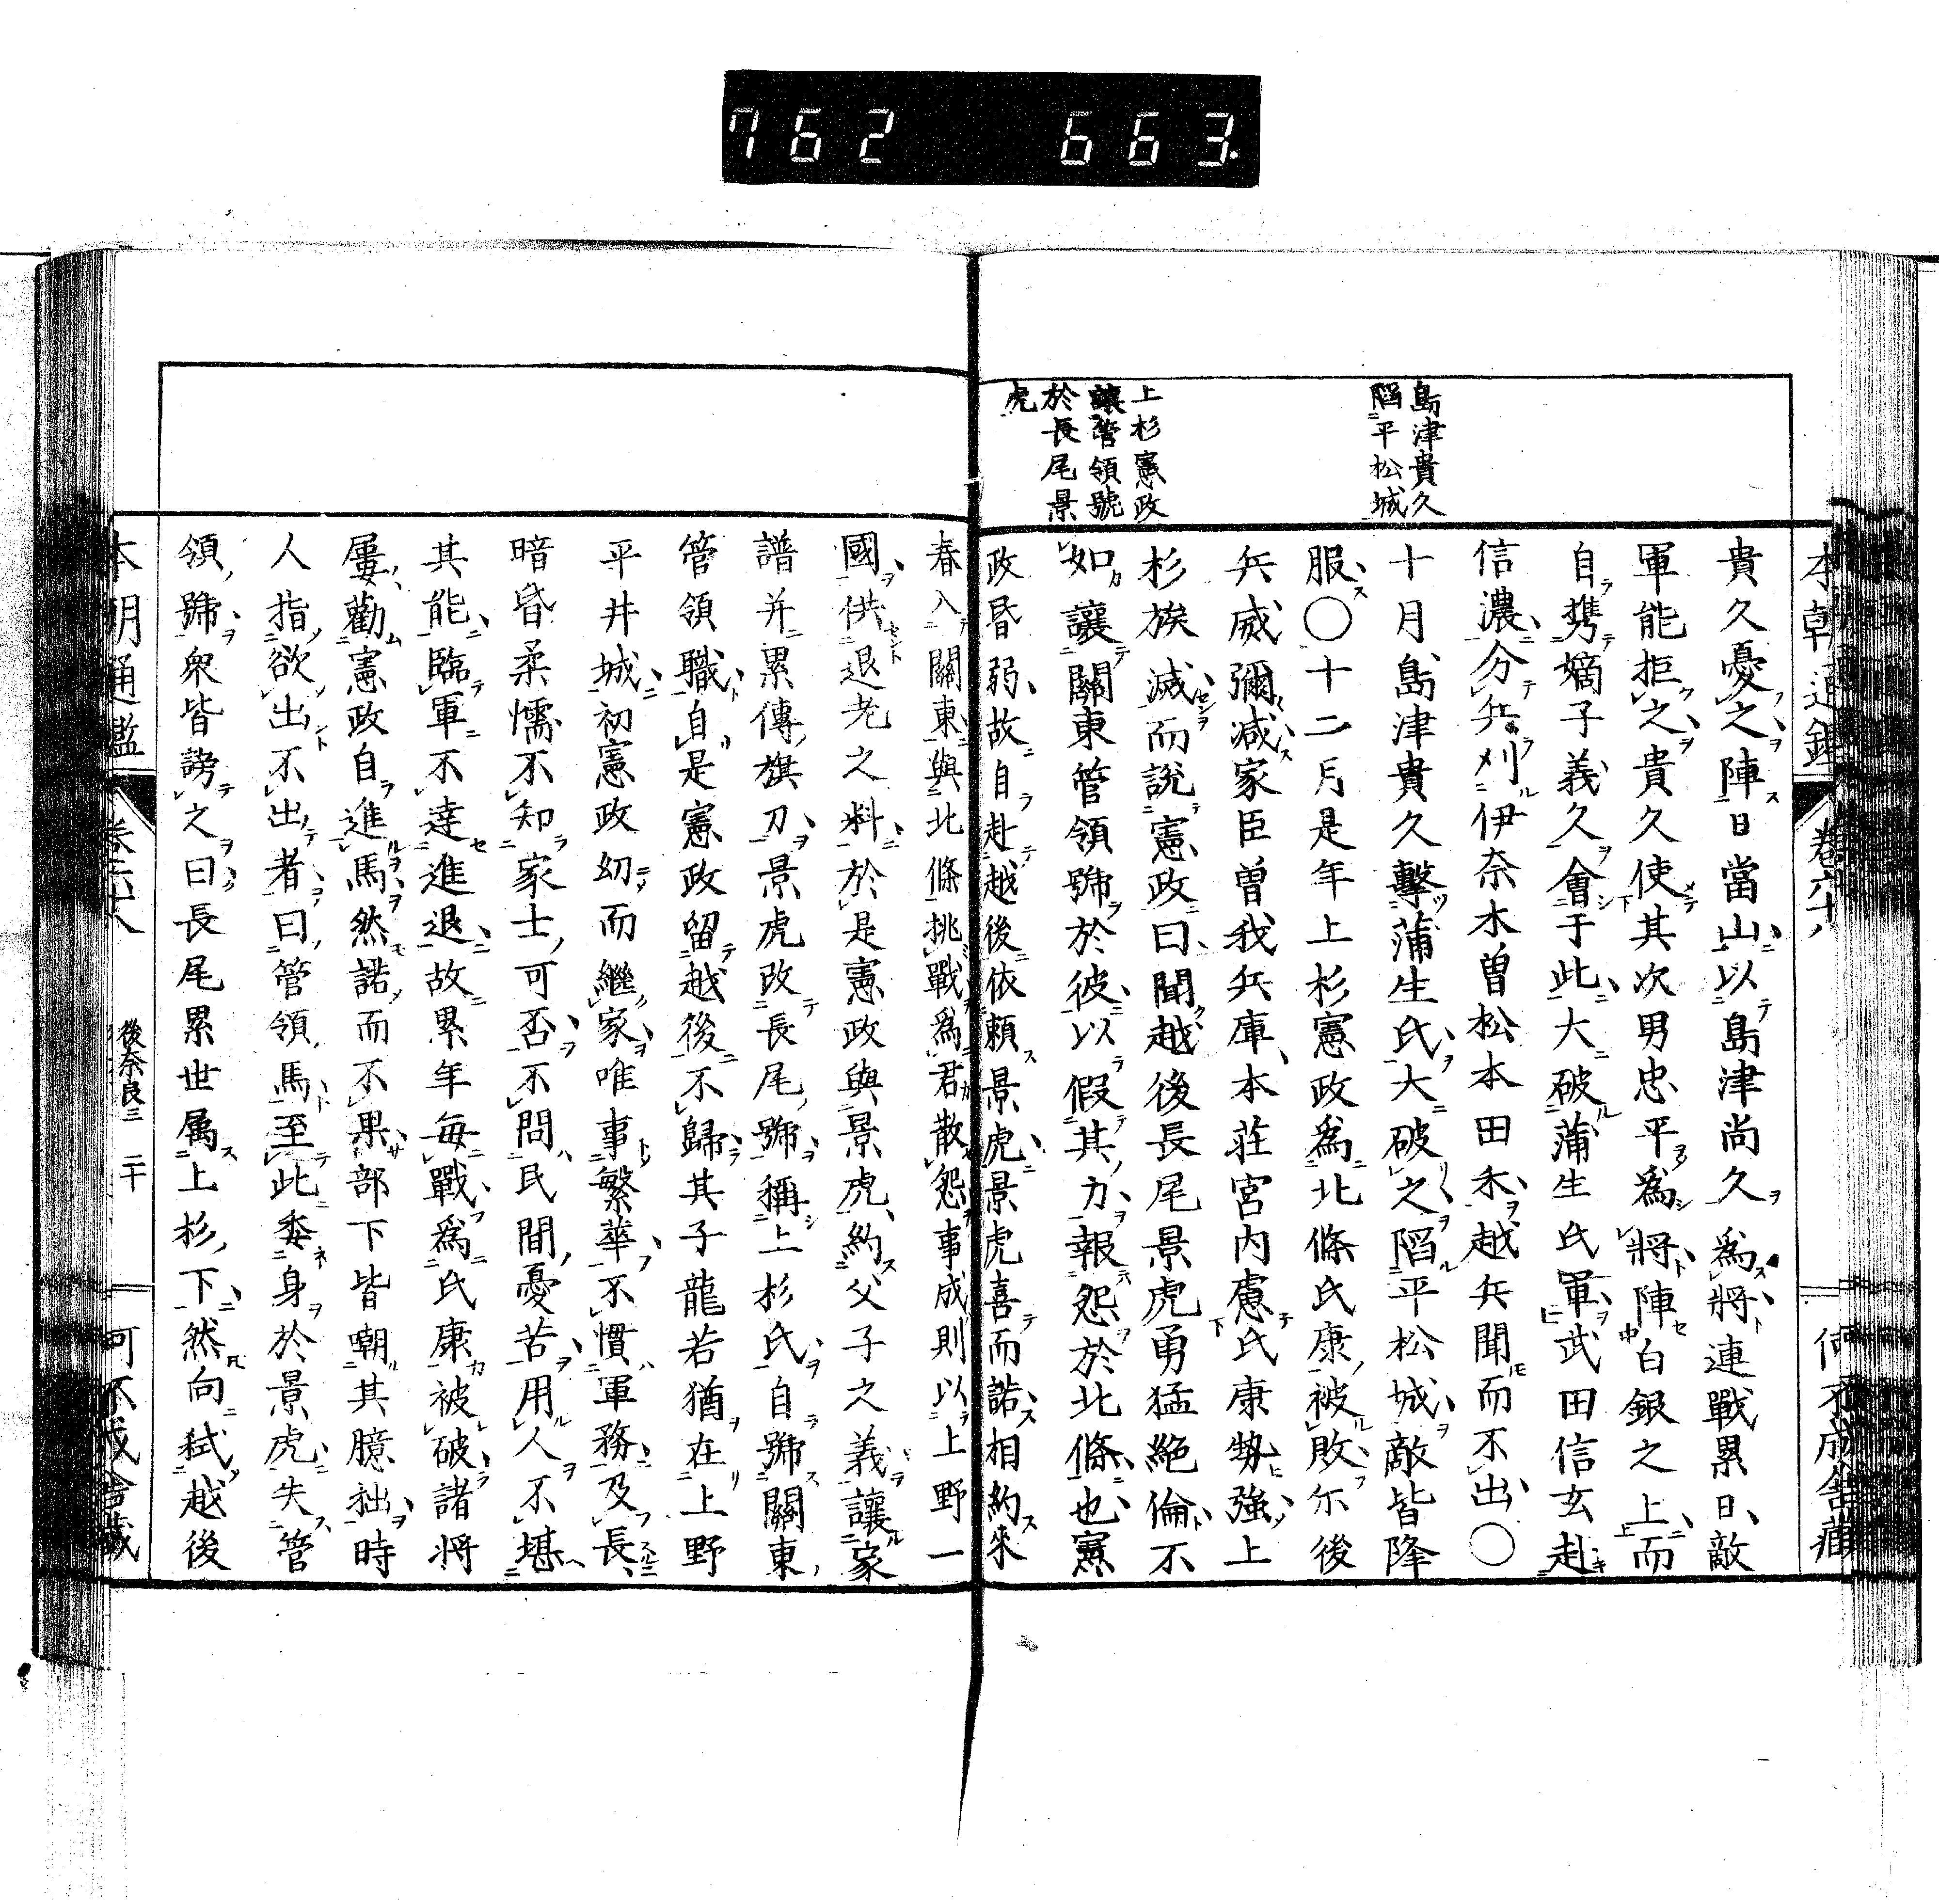 762 663.
本朝通鑑 卷六十八 何不成舍藏
島津貴久
陷平松城
上杉憲政
讓管領號
於長尾景
虎
貴久憂之陣日當山以島津尚久爲將連戰累日敵
軍能拒之貴久使其次男忠平爲將陣白銀之上而
自携嫡子義久會于此大破蒲生氏軍武田信玄赴
信濃分兵刈伊奈木曽松本田禾越兵聞而不出〇
十月島津貴久擊蒲生氏大破之陷平松城敵皆降
服〇十二月是年上杉憲政爲北條氏康被敗尓後
兵威彌减家臣曽我兵庫本莊宮内慮氏康勢強上
杉族滅而説憲政曰聞越後長尾景虎勇猛絶倫不
如讓關東管領號於彼以假其力報怨於北條也憲
政昏弱故自赴越後依頼景虎景虎喜而諾相約來
春入關東與北條挑戰爲君散怨事成則以上野一
國供退老之料於是憲政與景虎約父子之義讓家
譜并累傳旗刀景虎改長尾號稱上杉氏自號關東
管領職自是憲政留越後不歸其子龍若猶在上野
平井城初憲政幼而繼家唯事繁華不慣軍務及長
暗昏柔懦不知家士可否不問民間憂苦用人不堪
其能臨軍不達進退故累年毎戰爲氏康被破諸將
屢勸憲政自進馬然諾而不果部下皆嘲其臆拙時
人指欲出不出者曰管領馬至此委身於景虎失管
領號衆皆謗之曰長尾累世属上杉下然向弑越後
本朝通鑑 卷六十八 後奈良三 二十 何不成舍藏